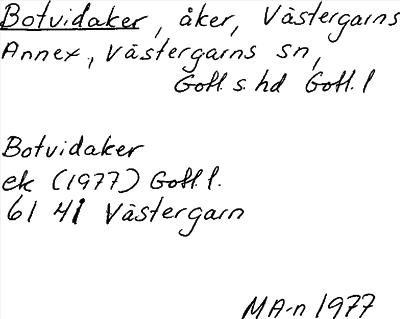 Botvidaker, åker, Västergarns
Annex, Västergarns sn,
Gotl. s. hd Gotl. l
Botvidaker
ek (1977) Gotl. l.
6I 4i Västergarn
MA-n 1977